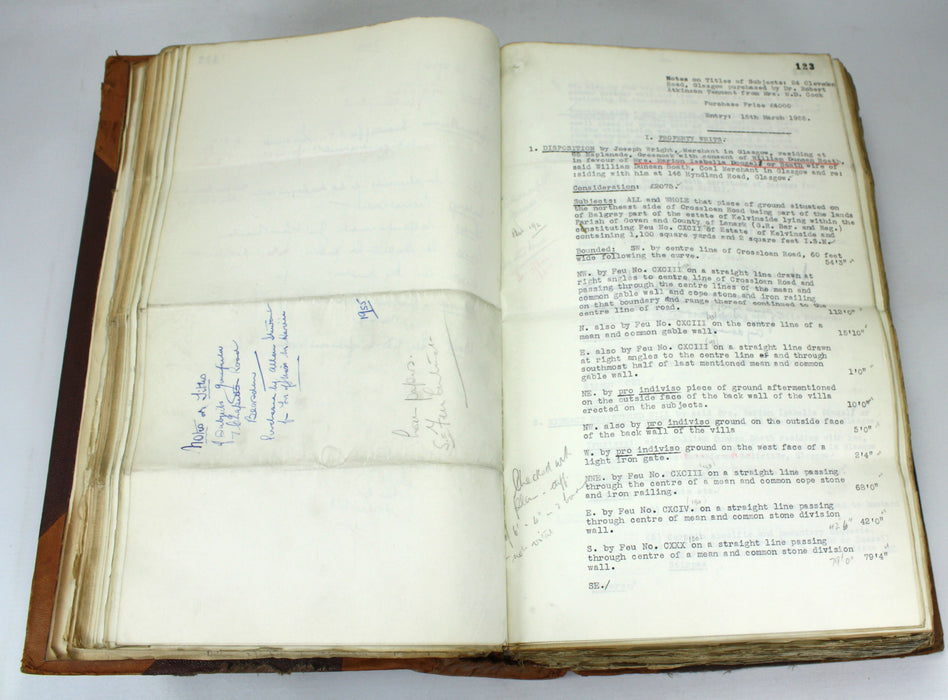 Notes on Titles
Bearsden
Purchase by Allan
1955
Loan papers.
123
Notes on Titles of Subjects: 24 Cleveden
Road, Glasgow purchased by Dr. Robert
Atkinson Tennant from Mrs. E.D. Cook
Purchase Price £4000
Entry: 15th March 1955.
I. PROPERTY WRITS.
1. DISPOSITION by Joseph Wright, Merchant in Glasgow, residing at
65 Esplanade, Greenock with consent of William Duncan Heath,
in favour of Mrs. Marion Isabella or Heath wife of
said William Duncan Heath, Coal Merchant in Glasgow and re:
:siding with him at 146 Hyndland Road, Glasgow.
Consideration: £2075.
Subjects: ALL and WHOLE that piece of ground situated on
the northeast side of Crossloan Road being part of the lands
of Balgray part of the estate of Kelvinside lying within the
Parish of Govan and County of Lanark (G.R. Bar. and Reg.)
constituting Feu No. CXCII of Estate of Kelvinside and
containing 1,100 square yards and 2 square feet I.S.M.
Bounded: SW. by centre line of Crossloan Road, 60 feet
wide following the curve. 54'3"
NW. by Feu No. CXCIII on a straight line drawn at
right angles to centre line of Crossloan Road and
passing through the centre lines of the mean and
common gable wall and cope stone and iron railing
on that boundary and range thereof continued to the
centre line of road. 112'0"
N. also by Feu No. CXCIII on the centre line of a
mean and common gable wall. 15'10"
E. also by Feu No. CXCIII on a straight line drawn
at right angles to the centre line of and through
southmost half of last mentioned mean and common
gable wall. 1'0"
NE. by pro indiviso piece of ground aftermentioned
on the outside face of the back wall of the villa
erected on the subjects. 10'0"
NW. also by pro indiviso ground on the outside face
of the back wall of the villa 5'0"
W. by pro indiviso ground on the west face of a
light iron gate. 2'4"
NNE. by Feu No. CXCIII on a straight line passing
through the centre of a mean and common cope stone
and iron railing. 68'0"
E. by Feu No. CXCIV. on a straight line passing
through centre of mean and common stone division
wall. 42'6" 42'0"
S. by Feu No. CXXX on a straight line passing
through centre of a mean and common stone division
wall. 79'0" 79'4"
SE./
Checked with
plan